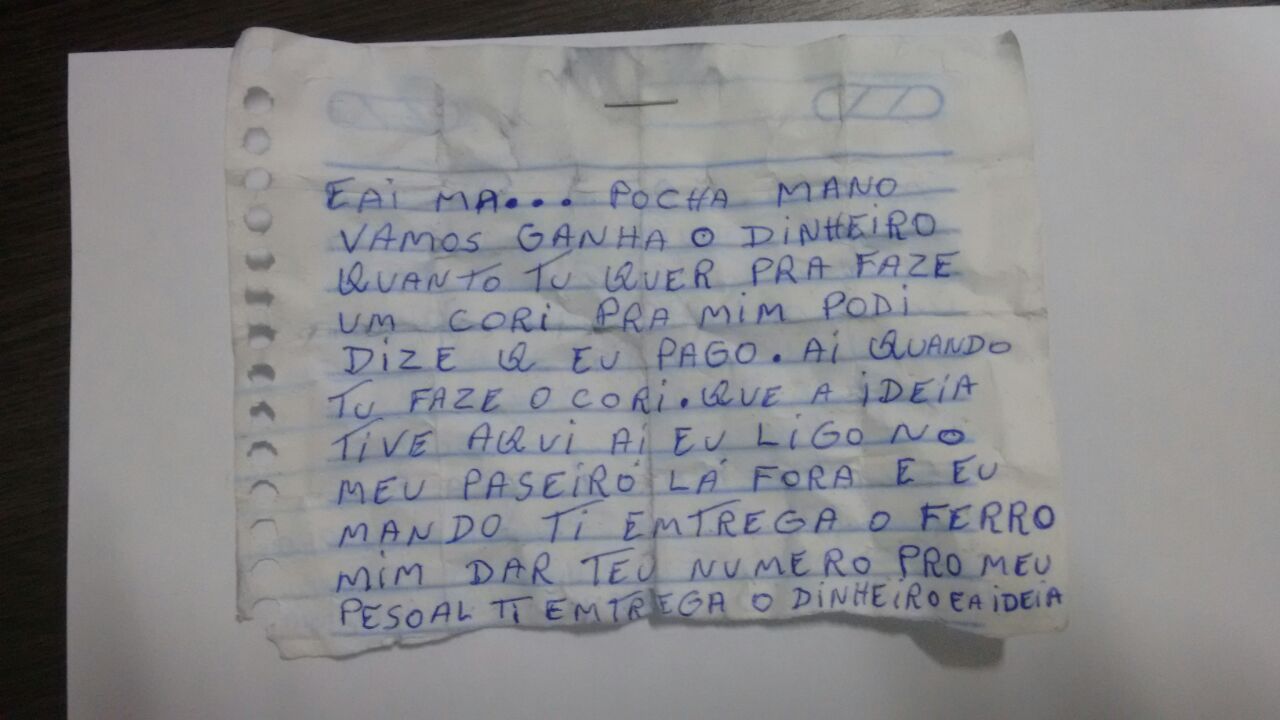 EAI MA... POCHA MANO
VAMOS GANHA O DINHEIRO
QUANTO TU QUER PRA FAZE
UM CORI PRA MIM PODI
DIZE Q EU PAGO. AI QUANDO
TU FAZE O CORI. QUE A IDEIA
TIVE AQUI AI EU LIGO NO
MEU PASEIRÓ LÁ FORA E EU
MANDO TI EMTREGA O FERRO
MIM DAR TEU NUMERO PRO MEU
PESOAL TI EMTREGA O DINHEIRO E A IDEIA